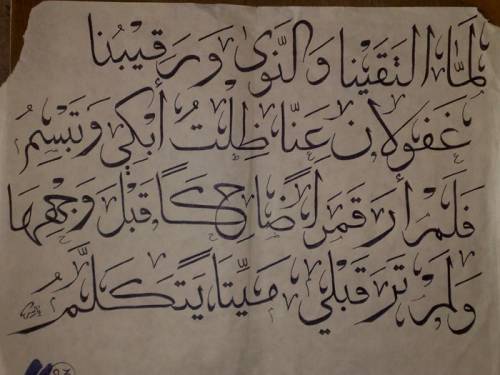 لَمَّا الْتَقَيْنَا وَالنَّوَى وَرَقِيبُنَا
غَفُولَانِ عَنَّا ظِلْتُ أَبْكِي وَتَبْسِمُ
فَلَمْ أَرَ قَمَرًا ضَاحِكًا قَبْلَ وَجْهِهَا
وَلَمْ تَرَ قَبْلِي مَيِّتًا يَتَكَلَّمُ